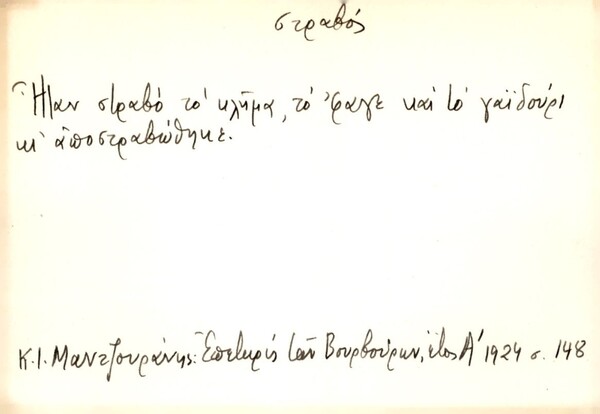 στραβός
Ἦταν στραβό τό κλῆμα, τό 'φαγε καί τό γαϊδούρι
κι' ἀποστραβώθηκε.
Κ.Ι. Μαντζουράνης: Ἐπετηρίς τῶν Βουρβούρων, ἔτος Α' 1924 σ. 148